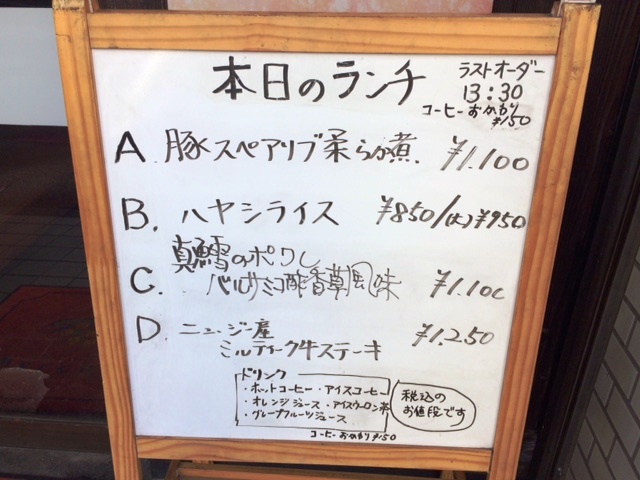 本日のランチ
ラストオーダー
13:30
コーヒーおかわり
¥150
A. 豚スペアリブ柔らか煮. ¥1.100
B. ハヤシライス ¥850/(大)¥950
真鱈のポワレ
C. バルサミコ酢香草風味 ¥1.100
D. ニュージー産 ¥1.250
ミルティーク牛ステーキ
ドリンク
・ホットコーヒー・アイスコーヒー
・オレンジジュース・アイスウーロン茶
・グレープフルーツジュース
税込の
お値段です
コーヒーおかわり ¥150